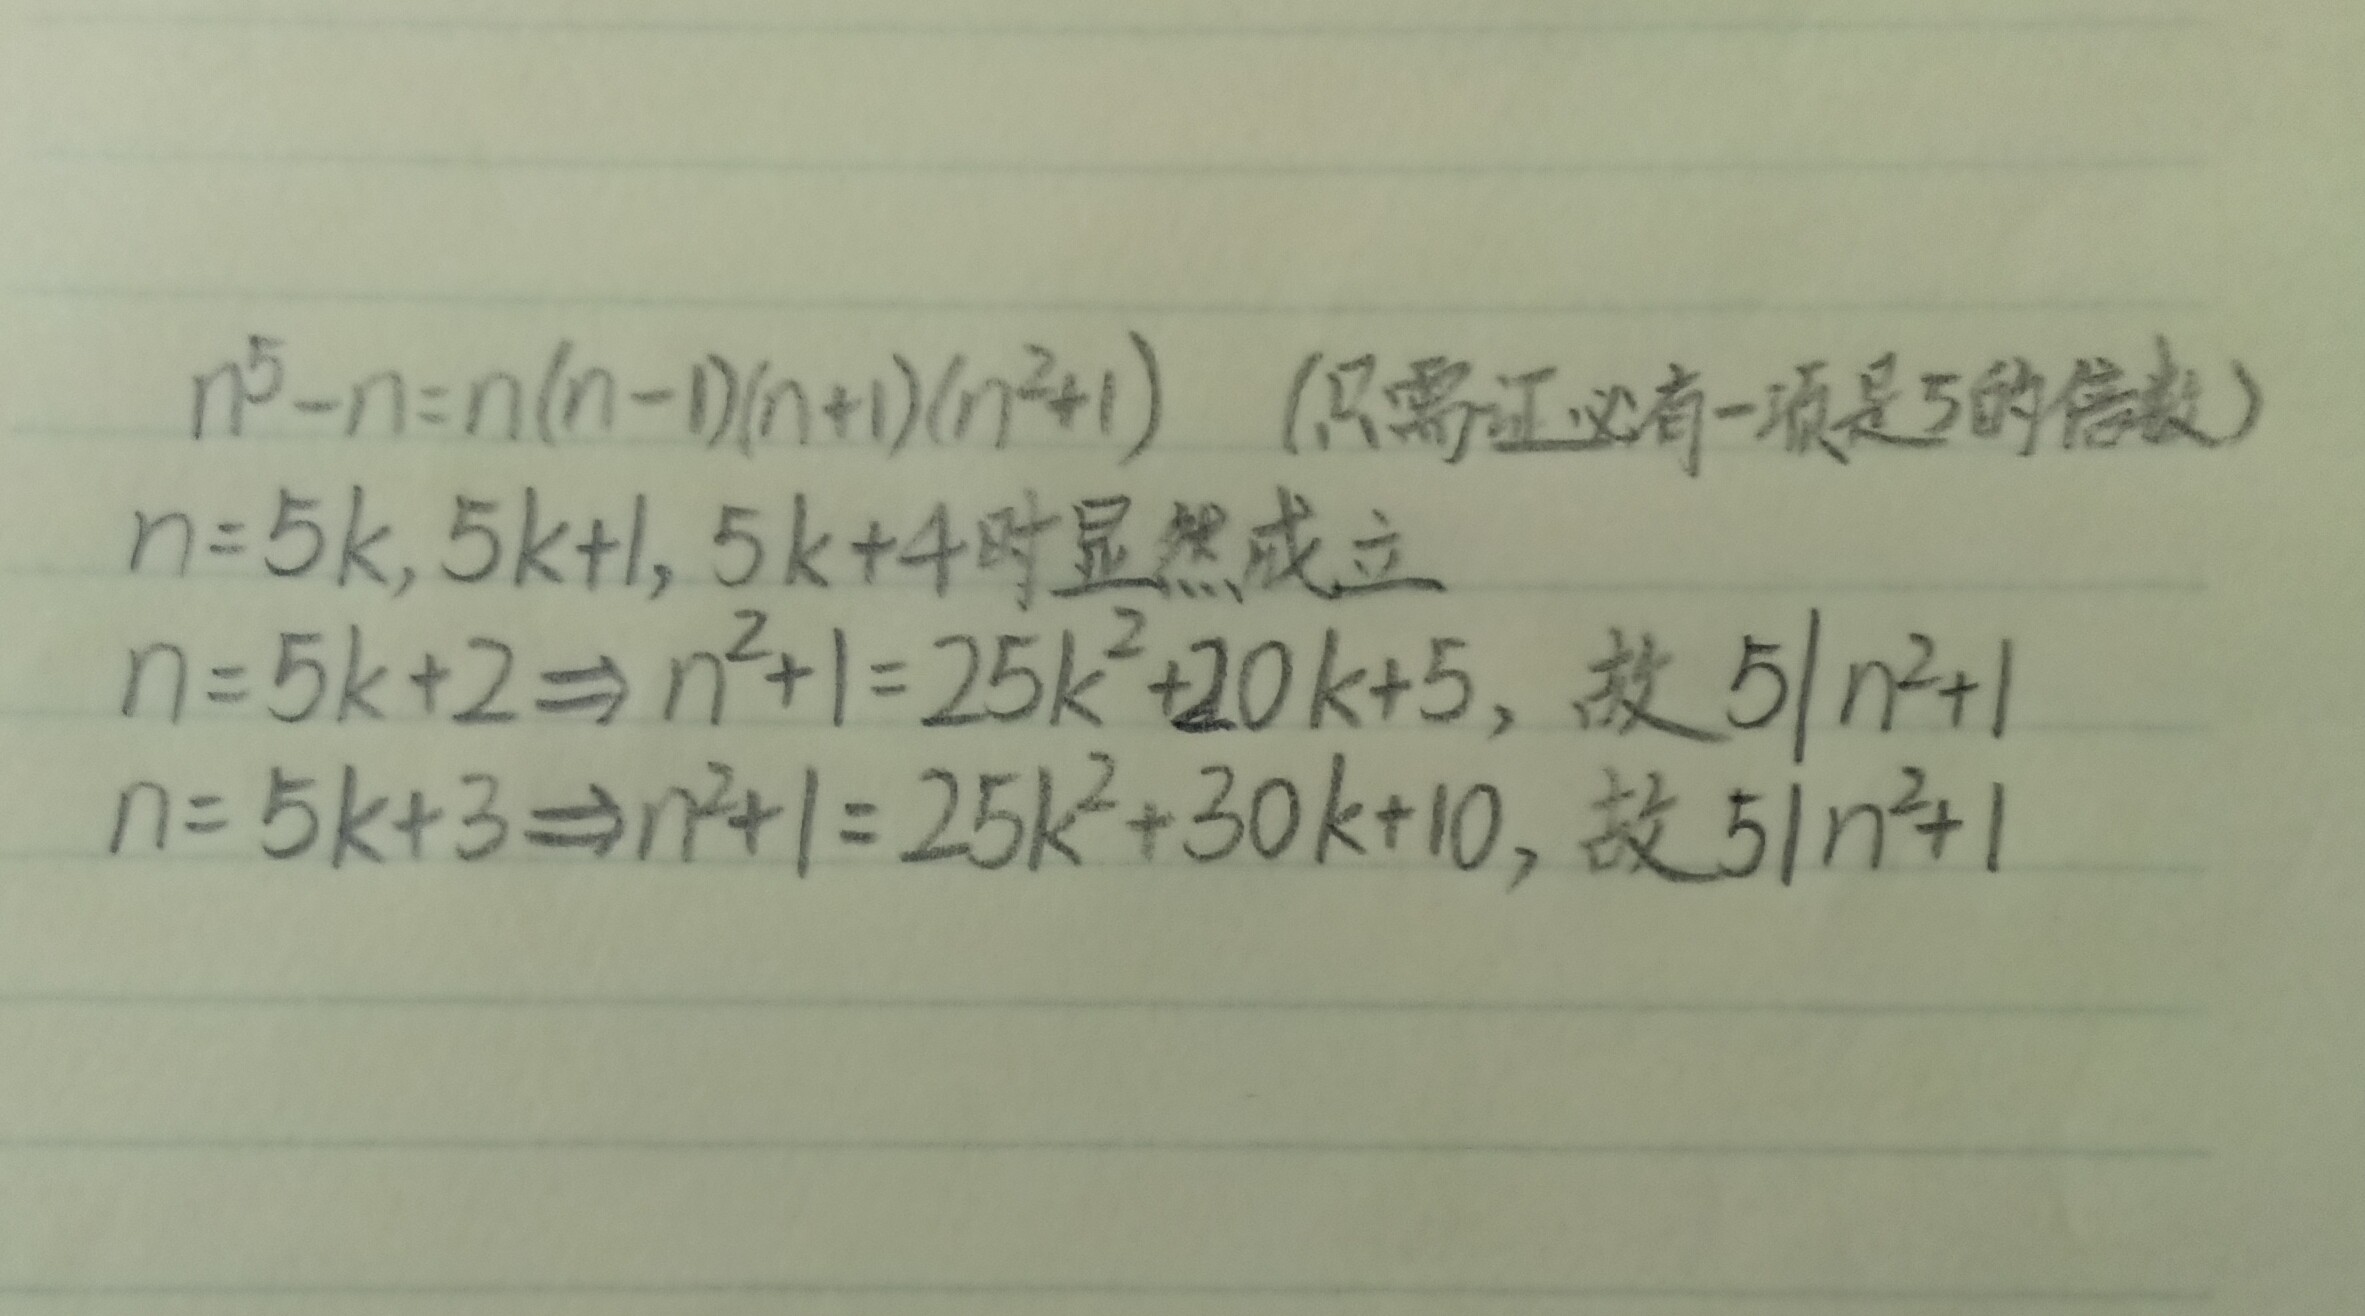 n⁵-n=n(n-1)(n+1)(n²+1) (只需证必有一项是5的倍数)
n=5k, 5k+1, 5k+4时显然成立
n=5k+2⇒n²+1=25k²+20k+5, 故5|n²+1
n=5k+3⇒n²+1=25k²+30k+10, 故5|n²+1